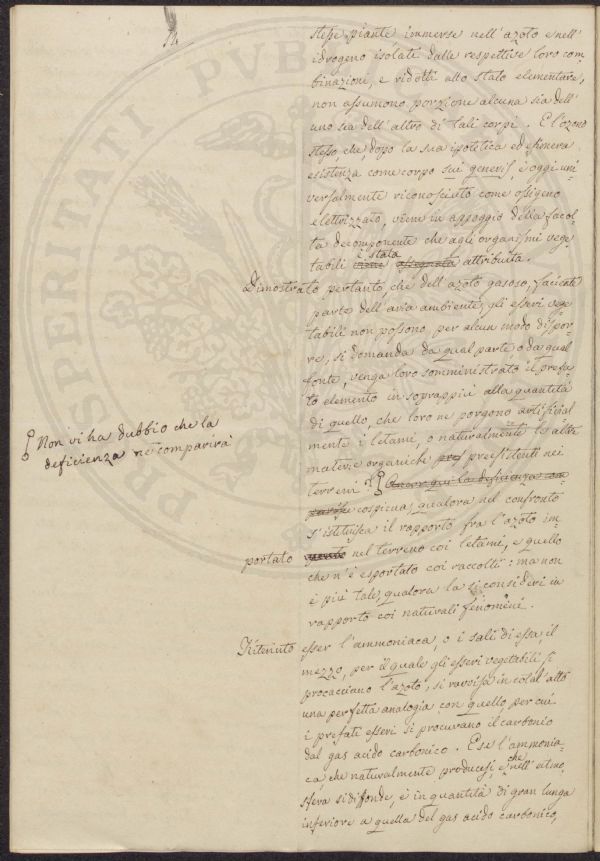 14
stesse piante immerse nell'azoto e nell'
idrogeno isolati dalle respettive loro com-
binazioni, e ridotti allo stato elementare,
non assumono porzione alcuna sia dell'
uno sia dell'altro di tali corpi. E l'ozono
stesso che dopo la sua ipotetica ed efimera
esistenza come corpo sui generis, è oggi uni-
versalmente riconosciuto come ossigeno
elettrizzato, viene in appoggio della facol-
tà decomponente che agli organismi vege-
è stata
tabili viene assegnata attribuita.
Dimostrato pertanto, che dell'azoto gasoso, faciente
parte dell'aria ambiente, gli esseri vege-
tabili non possono per alcun modo dispor-
re, si domanda da qual parte o da qual
fonte, venga loro somministrato il prefa-
to elemento in soprappiù alla quantità
di quello, che loro ne porgono artificial-
mente i letami, o naturalmente le altre
materie organiche pref preesistenti nei
terreni?
Non vi ha dubbio che la
deficienza ne comparirà
Ancor qui la deficienza com-
parisce cospicua, qualora nel confronto
s'istituisca il rapporto fra l'azoto im-
portato nel terreno coi letami, e quello
che n'è esportato coi raccolti: ma non
è più tale, qualora la si consideri in
rapporto coi naturali fenomeni.
Ritenuto esser l'ammoniaca, o i sali di essa il
mezzo, per il quale gli esseri vegetabili si
procacciano l'azoto, si ravvisa in cotal atto
una perfetta analogia con quello per cui
i prefati esseri si procurano il carbonio
dal gas acido carbonico. E se l'ammonia-
ca che naturalmente producesi, e che nell'atmo-
sfera si diffonde, è in quantità di gran lunga
inferiore a quella del gas acido carbonico,
PROSPERITATI PUBLICAE